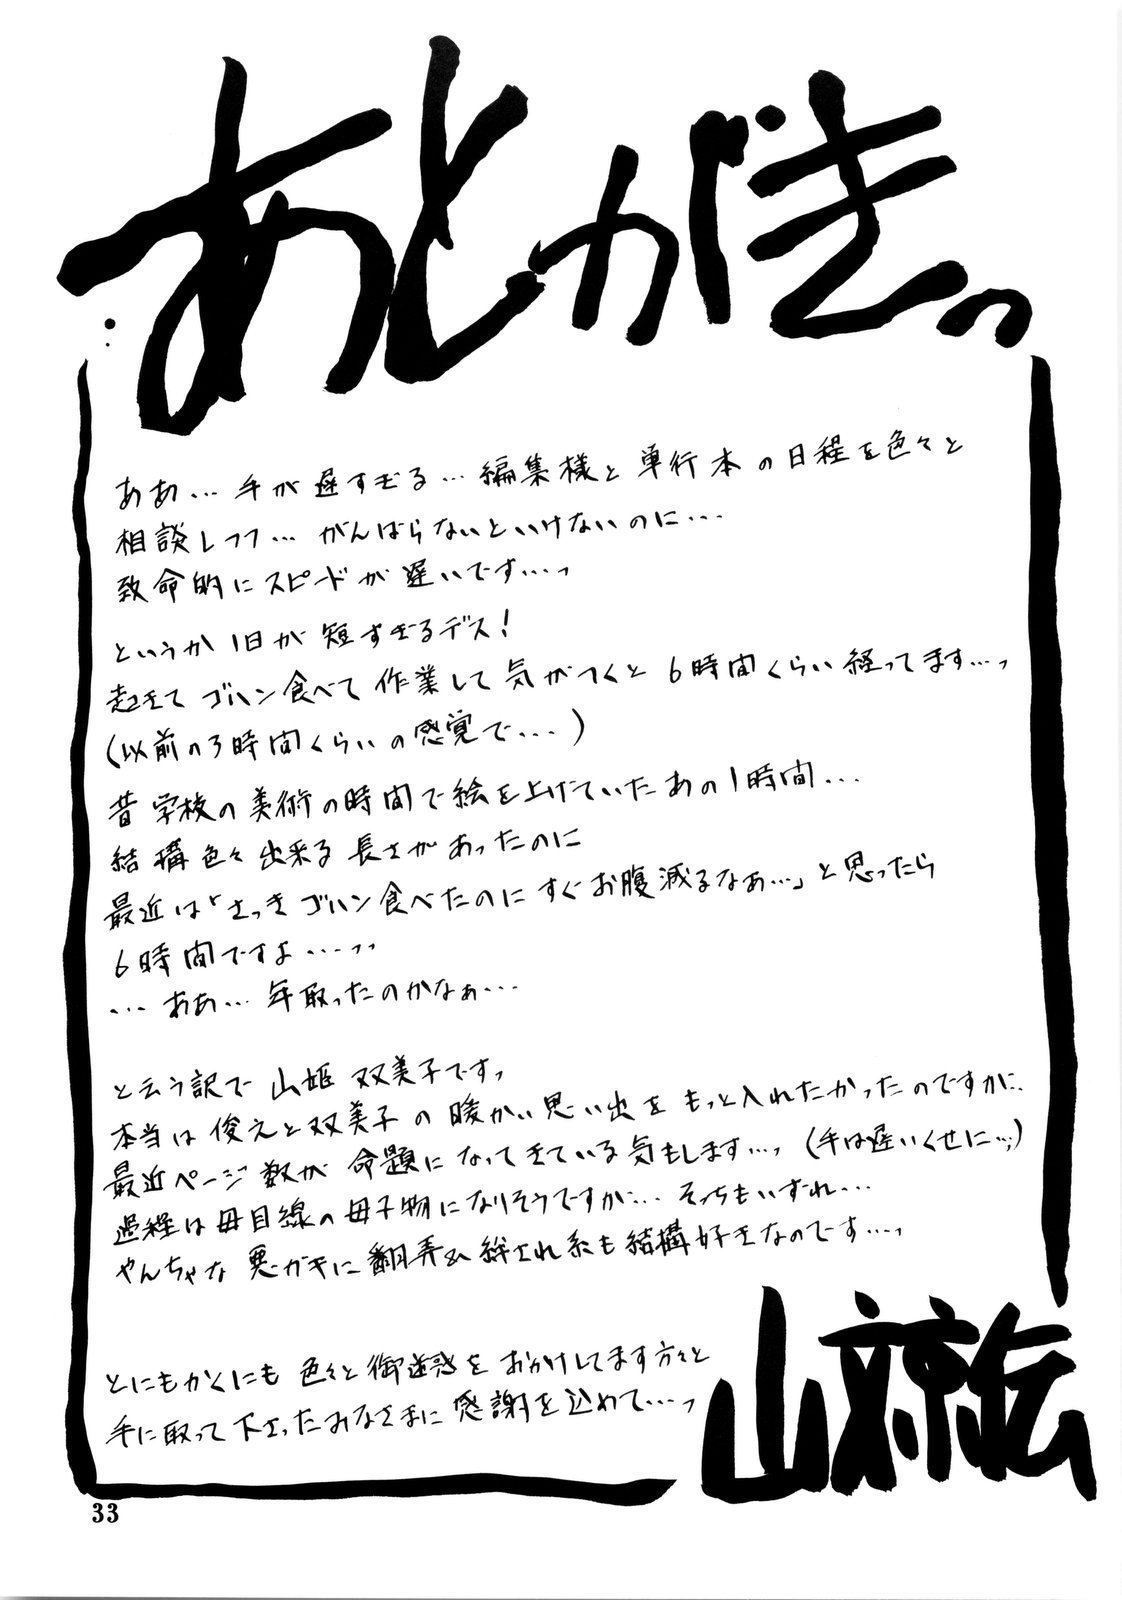 あとがきっ
ああ…手が遅すぎる…編集様と単行本の日程を色々と
相談しつつ…がんばらないといけないのに…
致命的にスピードが遅いです…っ
というか1日が短すぎるデス!
起きてゴハン食べて作業して気がつくと6時間くらい経ってます…っ
(以前の3時間くらいの感覚で…)
昔学校の美術の時間で絵を上げていたあの1時間…
結構色々出来る長さがあったのに
最近は「さっきゴハン食べたのにすぐお腹減るなぁ…」と思ったら
6時間ですよ…っっ
…ああ…年取ったのかなぁ…
と云う訳で山姫双美子ですっ
本当は俊之と双美子の暖かい思い出をもっと入れたかったのですが、
最近ページ数が命題になってきている気もします…っ(手は遅いくせに…)
過程は母目線の母子物になりそうですが…そっちもいずれ…
やんちゃな悪ガキに翻弄&絆され系も結構好きなのです…っ
ともかくにも色々と御迷惑をおかけしてます方々と
手に取って下さったみなさまに感謝を込めて…っ
山文京伝
33